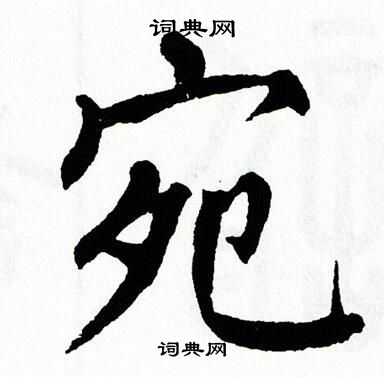 词典网
宛
词典网